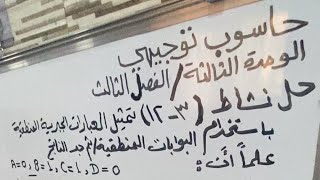 حاسوب توجيهي
الوحدة الثالثة/الفصل الثالث
حل نشاط (٣-١٢) تمثيل العبارات الجبرية المنطقية
باستخدام البوابات المنطقية/ثم جد الناتج
علماً أنّ: A=0, B=1, C=1, D=0